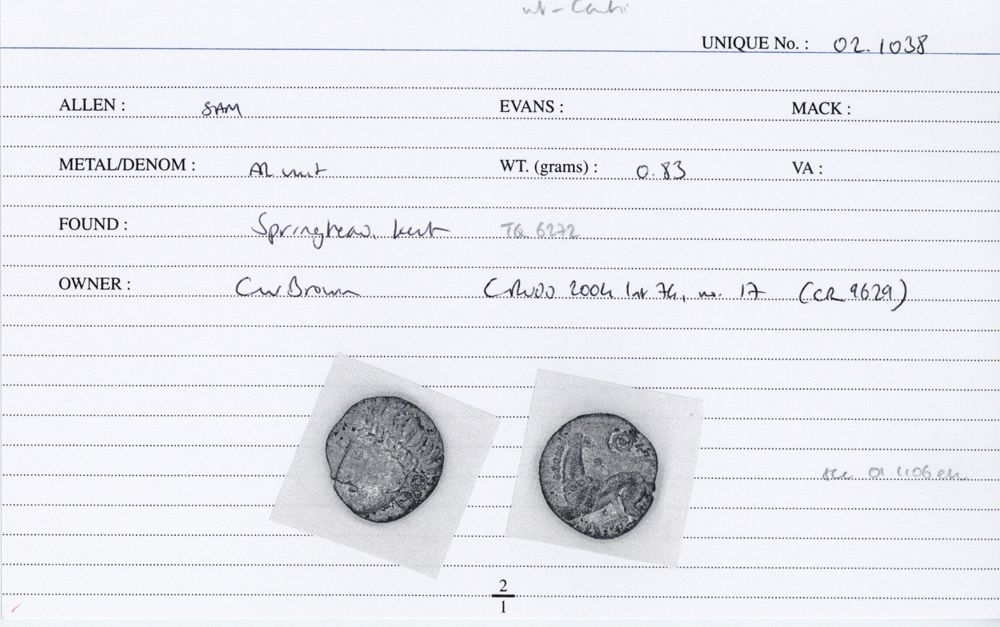 UNIQUE No. : 02.1038
ALLEN : SAM EVANS : MACK :
METAL/DENOM : AR unit WT. (grams) : 0.83 VA :
FOUND : Springhead, Kent TQ 6272
OWNER : CW Brown 2004 lot 74, no. 17 (CR 9629)
see 01.1106 etc
2
1